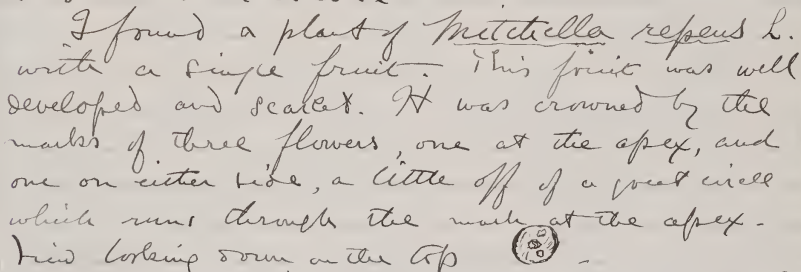 I found a plant of Mitchella repens L.
with a single fruit. This fruit was well
developed and scarlet. It was crowned by the
marks of three flowers, one at the apex, and
one on either side, a little off of a great circle
which runs through the mark at the apex.
View looking down on the top